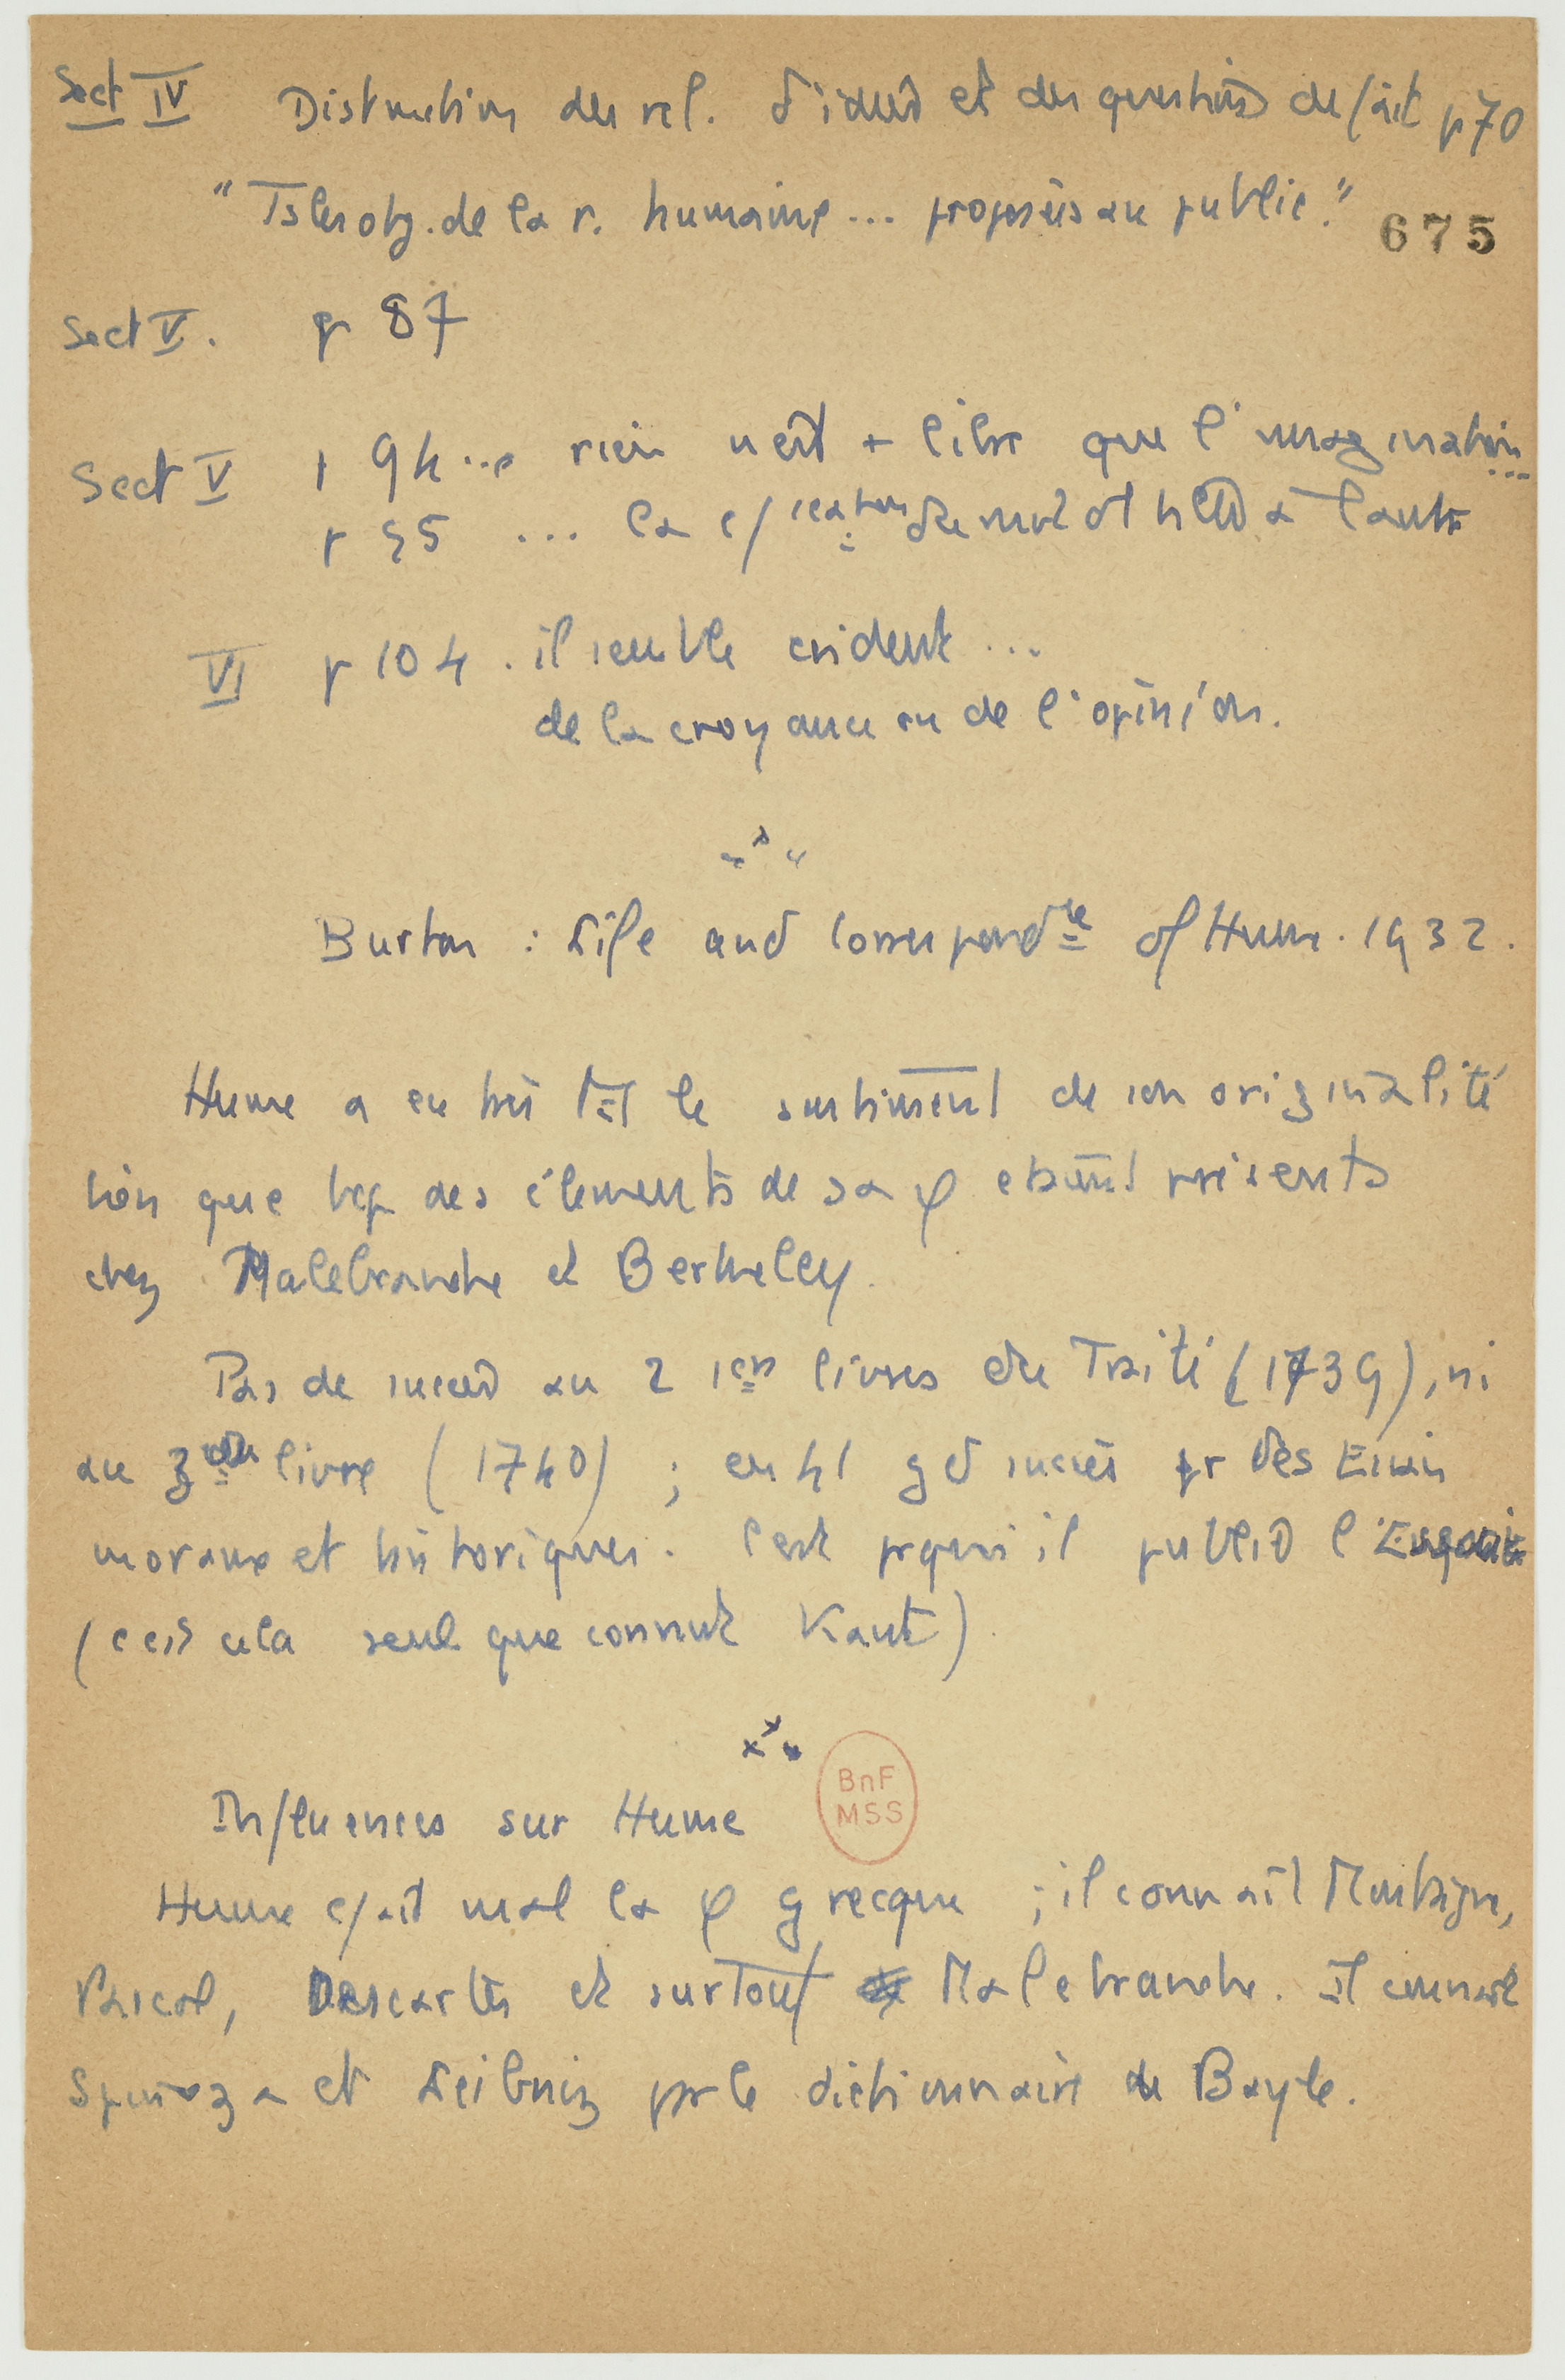 Sect IV Distinction des rel. d'idées et des questions de fait p 70
"Ts les obj. de la r. humaine ... proposées au public."
675
Sect V. p 87
Sect V p 94 ... rien n'est + libre que l'imagination ...
p 95 ...
VI p 104. il semble evident ...
de la croyance ou de l'opinion.
Burton : Life and Correspondce of Hume. 1932.
Hume a eu très tôt le sentiment de son originalité
bien que bcp des éléments de sa φ étaient présents
chez Malebranche et Berkeley.
Pas de succès au 2 1ers livres du Traité (1739), ni
au 3 livre (1740) ; en 41 gd succès pr des Essais
moraux et historiques. C'est pquoi il publie l'
(c'est cela seul que connut Kant).
BnF
MSS
Influences sur Hume
Hume c/ait mal la φ grecque ; il connaît Montaigne,
Pascal, Descartes et surtout Malebranche. Il connait
Spinoza et Leibniz par le dictionnaire de Bayle.